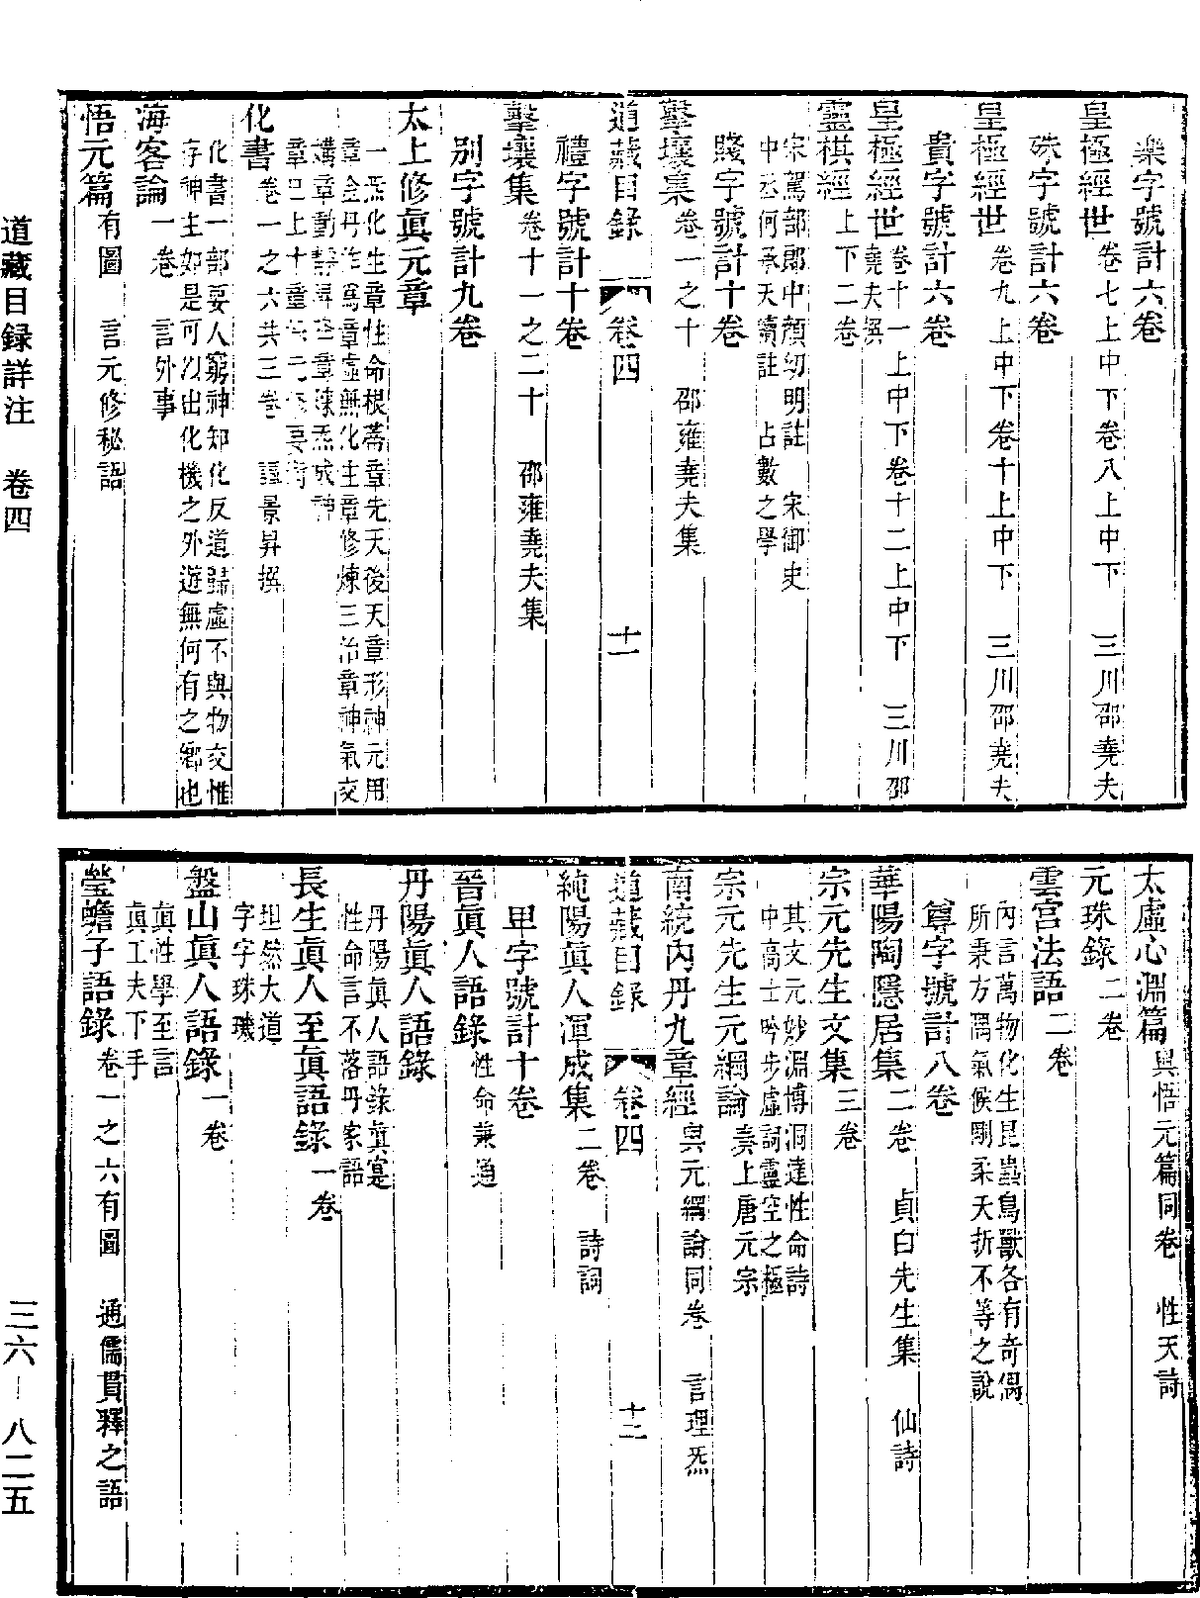 樂字號計六卷
皇極經世卷七上中下卷八上中下　三川邵堯夫
殊字號計六卷
皇極經世卷九上中下卷十上中下　三川邵堯夫
貴字號計六卷
皇極經世卷十一上中下卷十二上中下　三川邵
堯夫撰
靈棋經上下二卷
宋駕部郎中顏幼明註　宋御史
中丞何承天續註　占數之學
賤字號計十卷
擊壤集卷一之十　邵雍堯夫集
道藏目錄　卷四　十二
禮字號計十卷
擊壤集卷十一之二十　邵雍堯夫集
別字號計九卷
太上修眞元章
一炁化生章性命根蒂章先天後天章形神元用
章金丹作爲章虛無化生章修煉三治章神氣交
媾章動靜章煉炁成神
章已上十章
化書卷一之六共三卷　譚景昇撰
化書一部要人窮神知化反道歸虛不與物交惟
存神主如是可以出化機之外遊無何有之鄉也
海客論一卷　言外事
悟元篇有圖　言元修秘語
太虛心淵篇與悟元篇同卷　性天詩
元珠錄二卷
雲宮法語二卷
內言萬物化生昆蟲鳥獸各有奇偶
所秉方隅氣候剛柔夭折不等之說
尊字號計八卷
華陽陶隱居集二卷　貞白先生集　仙詩
宗元先生文集三卷
其文元妙淵博洞達性命詩
中高士吟步虛詞靈空之極
宗元先生元綱論奏上唐元宗
南統內丹九章經與元綱論同卷　言理炁
道藏目錄　卷四　十三
純陽眞人渾成集二卷　詩詞
甲字號計十卷
晉眞人語錄性命兼通
丹陽眞人語錄
丹陽眞人語錄眞寔
性命言不落丹家語
長生眞人至眞語錄一卷
坦然大道
字字珠璣
盤山眞人語錄一卷
眞性學至言
眞工夫下手
瑩蟾子語錄卷一之六有圖　通儒貫釋之語
道藏目錄詳注　卷四
三六―八二五